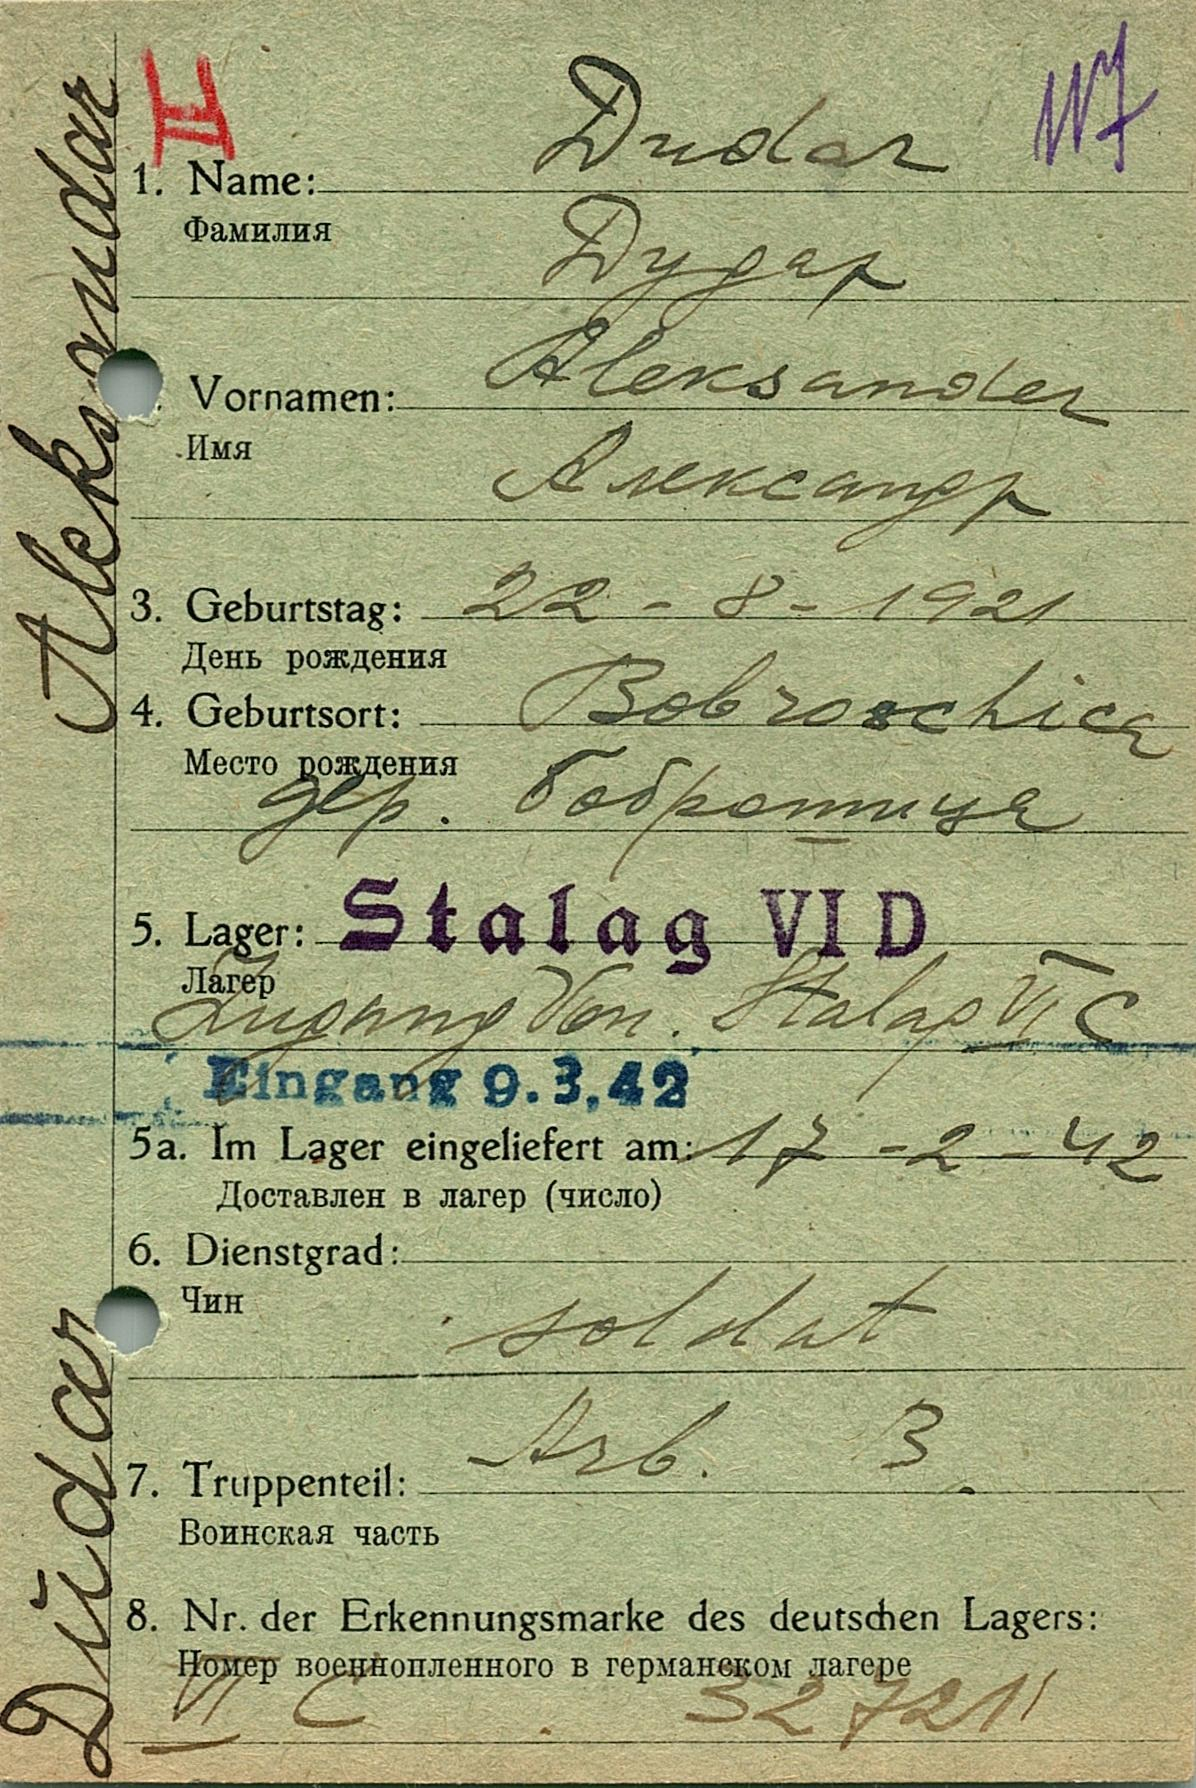 II
1. Name: Dudar
Фамилия
Дудар
Vornamen: Aleksander
Имя
Александр
3. Geburtstag: 22 - 8 - 1921
День рождения
4. Geburtsort: Bobroschica
Место рождения
дер. Бобротица
5. Lager: Stalag VI D
Лагер
Zugang Von. Stalag VI C
Eingang 9.3.42
5a. Im Lager eingeliefert am: 17 - 2 - 42
Доставлен в лагер (число)
6. Dienstgrad:
Чин
soldat
Arb. 3.
7. Truppenteil:
Воинская часть
8. Nr. der Erkennungsmarke des deutschen Lagers:
Номер военнопленного в германском лагере
VI C
Dudar Aleksandar